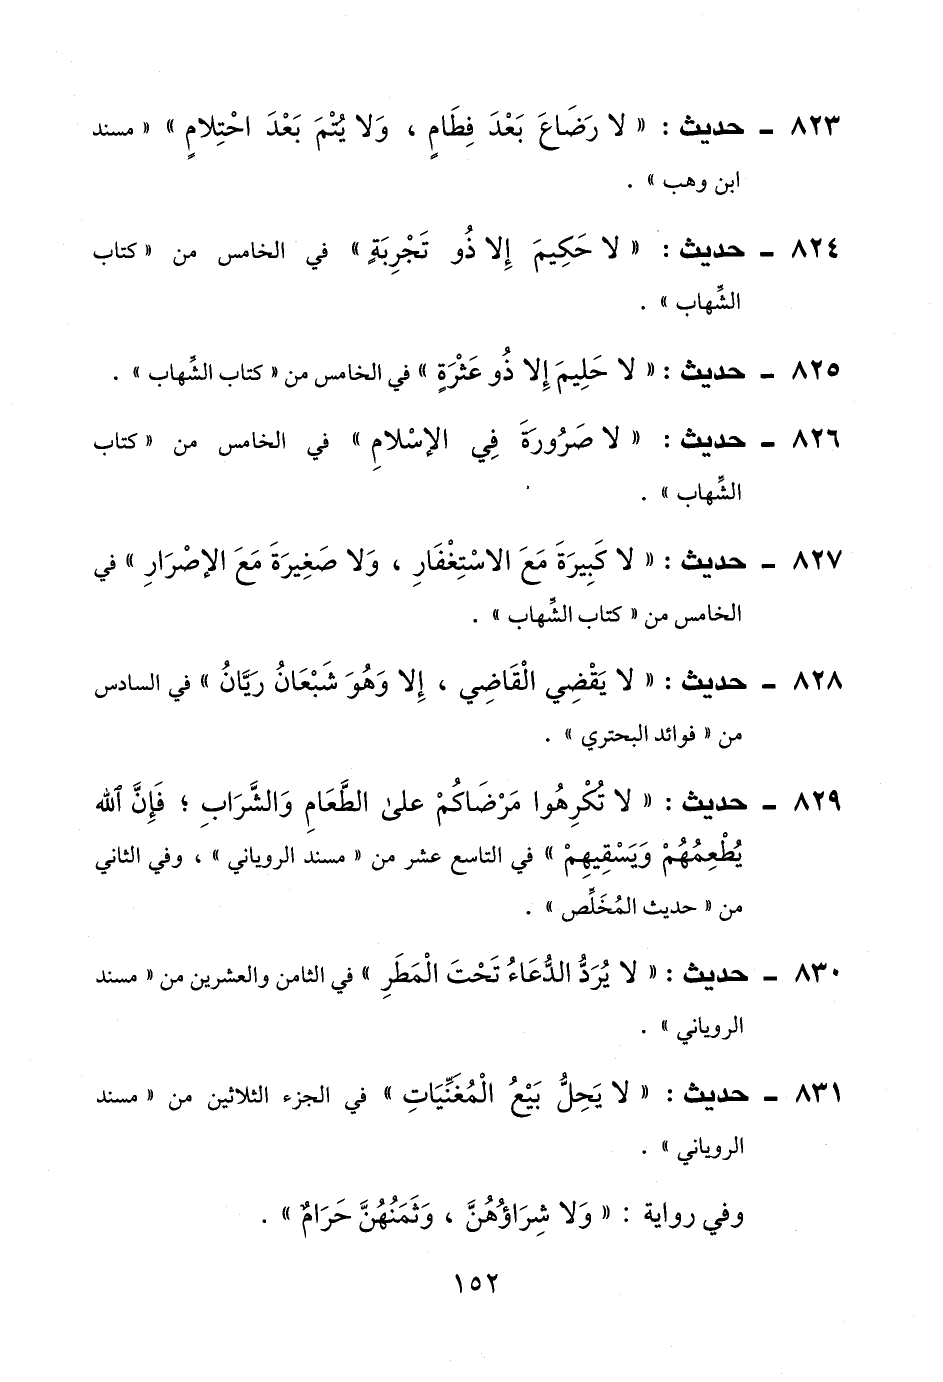 ٨٢٣ - حديث : « لا رَضَاعَ بَعْدَ فِطَامٍ ، وَلا يُتْمَ بَعْدَ احْتِلامٍ » « مسند
ابن وهب » .
٨٢٤ - حديث : « لا حَكِيمَ إِلا ذُو تَجْرِبَةٍ » في الخامس من « كتاب
الشِّهاب » .
٨٢٥ - حديث : « لا حَلِيمَ إِلا ذُو عَثْرَةٍ » في الخامس من « كتاب الشِّهاب » .
٨٢٦ - حديث : « لا صَرُورَةَ فِي الإسْلامِ » في الخامس من « كتاب
الشِّهاب » .
٨٢٧ - حديث : « لا كَبِيرَةَ مَعَ الاسْتِغْفَارِ ، وَلا صَغِيرَةَ مَعَ الإصْرَارِ » في
الخامس من « كتاب الشِّهاب » .
٨٢٨ - حديث : « لا يَقْضِي الْقَاضِي ، إِلا وَهُوَ شَبْعَانُ رَيَّانُ » في السادس
من « فوائد البحتري » .
٨٢٩ - حديث : « لا تُكْرِهُوا مَرْضَاكُمْ على الطَّعَامِ وَالشَّرَابِ ؛ فَإِنَّ ٱلله
يُطْعِمُهُمْ وَيَسْقِيهِمْ » في التاسع عشر من « مسند الروياني » ، وفي الثاني
من « حديث المُخَلِّص » .
٨٣٠ - حديث : « لا يُرَدُّ الدُّعَاءُ تَحْتَ الْمَطَرِ » في الثامن والعشرين من « مسند
الروياني » .
٨٣١ - حديث : « لا يَحِلُّ بَيْعُ الْمُغَنِّيَاتِ » في الجزء الثلاثين من « مسند
الروياني » .
وفي رواية : « وَلا شِرَاؤُهُنَّ ، وَثَمَنُهُنَّ حَرَامٌ » .
١٥٢